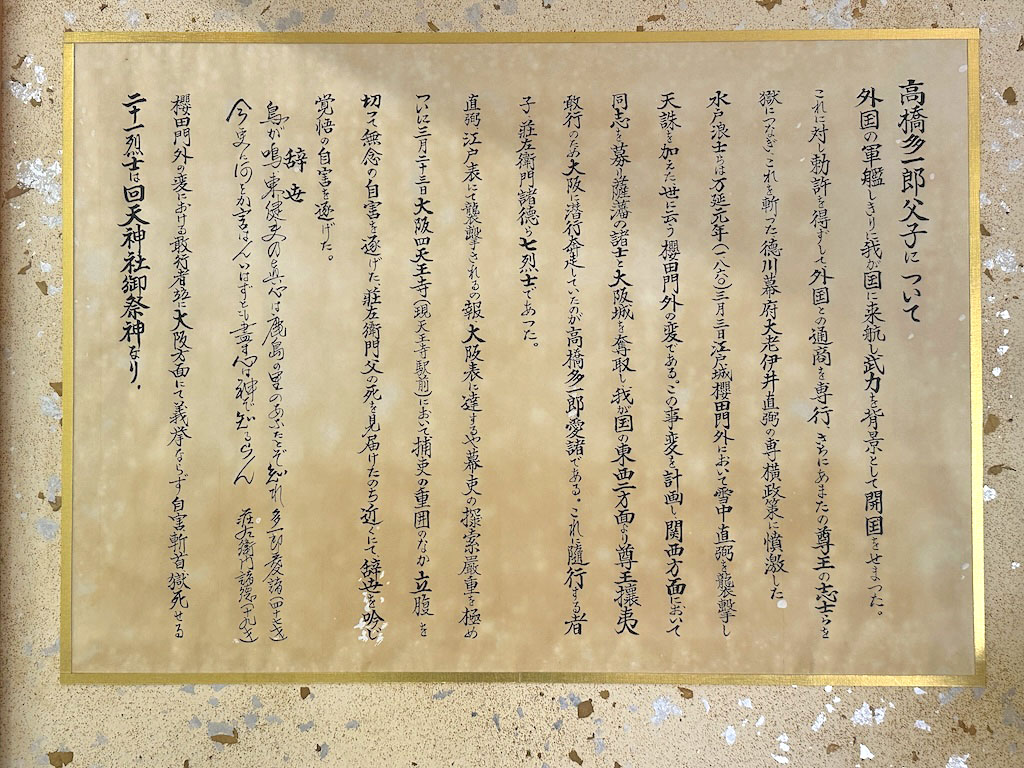 高橋多一郎父子について
外国の軍艦しきりに我が国に来航し武力を背景として開国をせまった。
これに対し勅許を得ずして外国との通商を専行 さらにあまたの尊王の志士らを
獄につなぎこれを斬った徳川幕府大老伊井直弼の専横政策に憤激した
水戸浪士らは万延元年(一八六〇)三月三日江戸城櫻田門外において雪中直弼を襲撃し
天誅を加えた 世に云う櫻田門外の変である この事変を計画し関西方面において
同志を募り薩藩の諸士と大阪城を奪取し我が国の東西二方面より尊王攘夷
敢行のため大阪に潜行奔走していたのが高橋多一郎愛諸である。これに隨行する者
子 荘左衛門諸徳ら七烈士であった。
直弼江戸表にて襲撃されるの報 大阪表に達するや幕吏の探索厳重を極め
ついに三月二十三日大阪四天王寺(現天王寺駅前)において捕吏の重囲のなか立腹を
切って無念の自害を遂げた 荘左衛門父の死を見届けたのち近くにて、辞世を吟じ
覚悟の自害を遂げた。
辞世
鳥が鳴く東健夫の真心は鹿島の里のあなたとぞ知れ 多一郎愛諸(四十七才)
今更に何をか言はん いはずとも盡す心は神ぞ知るらん 荘左衛門諸徳(十九才)
櫻田門外の変における敢行者並に大阪方面にて義挙ならず自害斬首獄死せる
二十一烈士は回天神社御祭神なり.